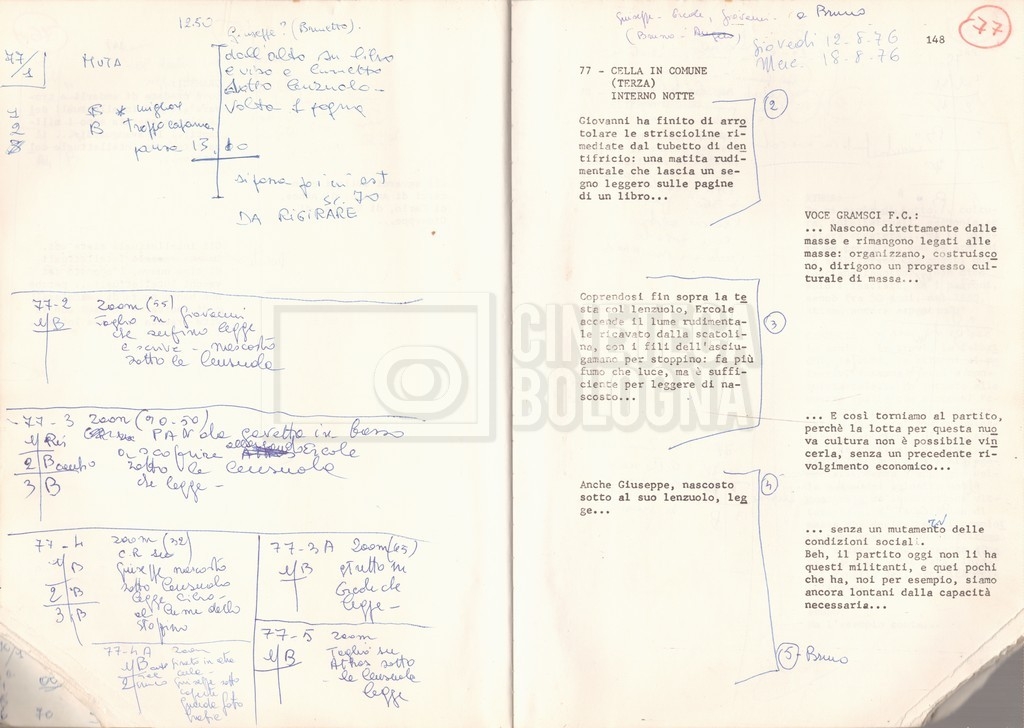 12.50
Giuseppe? (Brunetto)
77/1
MUTA
dall'alto su libro
e viso e
sotto lenzuolo -
volta 1 pagina
B * miglior
B Troppo
pausa 13.10
si passa poi in est
sc. 70
DA RIGIRARE
77-2 zoom (55)
1/B Taglio su Giovanni
che legge
e scrive - nascosto
sotto le lenzuola
77-3 zoom (90-50)
PAN da in basso
1
2 B a scoprire Ercole
sotto le lenzuola
3 B che legge -
77-4 zoom (32)
1 B Giuseppe nascosto
sotto lenzuolo
2 B legge libro
3 B al lume dello
stoppino
77-3A zoom (45)
1/B stretto su
Ercole che
legge -
77-4A zoom
1/B
2 Giuseppe sotto
coperte
guarda foto
77-5 zoom
1/B Taglio su
Athos sotto
le lenzuola
legge
70
Giuseppe - Ercole, Giovanni - e Bruno
(Bruno -
giovedì 12-8-76
Mer. 18-8-76
148
77
77 - CELLA IN COMUNE
(TERZA)
INTERNO NOTTE
2
Giovanni ha finito di arro
tolare le striscioline ri-
mediate dal tubetto di den
tifricio: una matita rudi-
mentale che lascia un se-
gno leggero sulle pagine
di un libro...
VOCE GRAMSCI F.C.:
... Nascono direttamente dalle
masse e rimangono legati alle
masse: organizzano, costruisco
no, dirigono un progresso cul-
turale di massa...
Coprendosi fin sopra la te
sta col lenzuolo, Ercole
accende il lume rudimenta-
le ricavato dalla scatoli-
na, con i fili dell'asciu-
gamano per stoppino: fa più
fumo che luce, ma è suffi-
ciente per leggere di na-
scosto...
3
... E così torniamo al partito,
perchè la lotta per questa nuo
va cultura non è possibile vin
cerla, senza un precedente ri-
volgimento economico...
Anche Giuseppe, nascosto
sotto al suo lenzuolo, leg
ge...
4
... senza un mutamento delle
condizioni sociali.
Beh, il partito oggi non li ha
questi militanti, e quei pochi
che ha, noi per esempio, siamo
ancora lontani dalla capacità
necessaria...
5 - Bruno
CINETECA
BOLOGNA